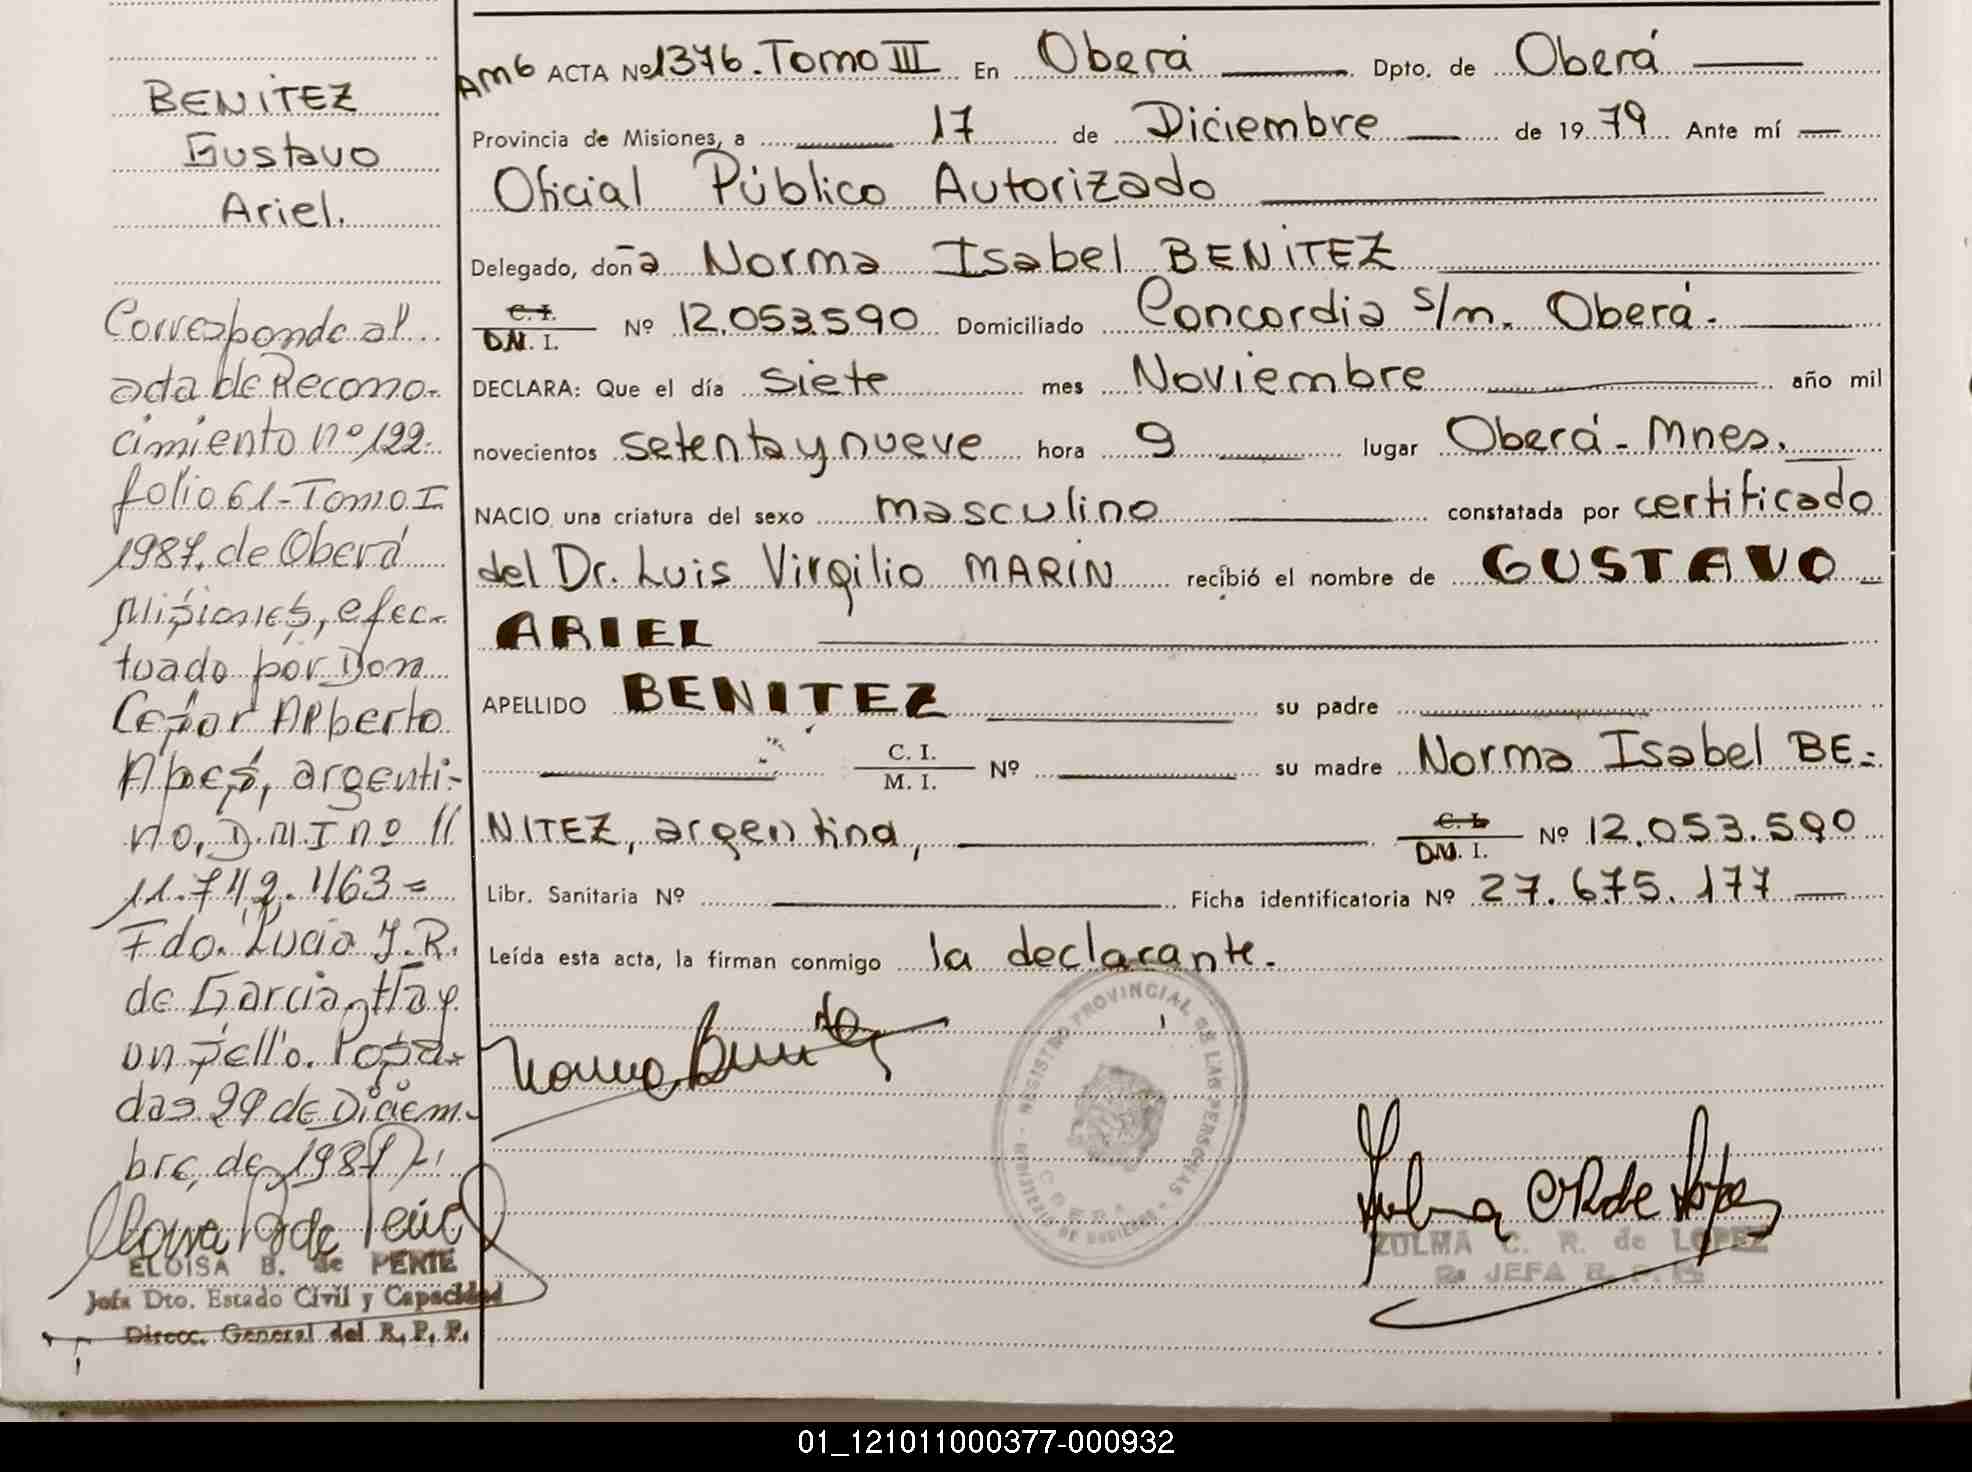 BENITEZ
Gustavo
Ariel.
Corresponde al
acta de Recono-
cimiento nº 122.
folio 61-Tomo I
1987. de Oberá
Misiones, efec-
tuado por Don
César Alberto
argenti-
no, D.N.I nº 11
11.742.163=
Fdo. Lucia J.R.
de Garcia. Hay
un sello. Posa-
das 29 de Diciem-
bre, de 1987
ELOISA B. de
Jefa Dto. Estado Civil y Capacidad
Direcc. General del R. P. P.
AMB ACTA Nº 1376. Tomo III En Oberá Dpto. de Oberá
Provincia de Misiones, a 17 de Diciembre de 19 79 Ante mí
Oficial Público Autorizado
Delegado, doña Norma Isabel BENITEZ
C. I.
D.N. I. Nº 12.053.590 Domiciliado Concordia s/n. Oberá.
DECLARA: Que el día siete mes Noviembre año mil
novecientos setenta y nueve hora 9 lugar Oberá - Mnes.
NACIO una criatura del sexo masculino constatada por certificado
del Dr. Luis Virgilio MARIN recibió el nombre de GUSTAVO
ARIEL
APELLIDO BENITEZ su padre
C. I.
M. I. Nº su madre Norma Isabel BE=
NITEZ, argentina, C. I.
D.N. I. Nº 12.053.590
Libr. Sanitaria Nº Ficha identificatoria Nº 27.675.177
Leída esta acta, la firman conmigo la declarante.
Norma Benitez
REGISTRO PROVINCIAL DE LAS PERSONAS
OBERA
Zulma CR de Lopez
ZULMA C. R. de LOPEZ
JEFA
01_121011000377-000932